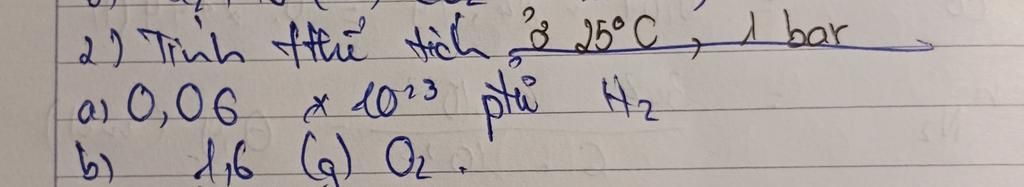 2) Tính thể tích ở 25°C, 1 bar
a) 0,06 x 10²³ ptử H₂
b) 1,6 (g) O₂.